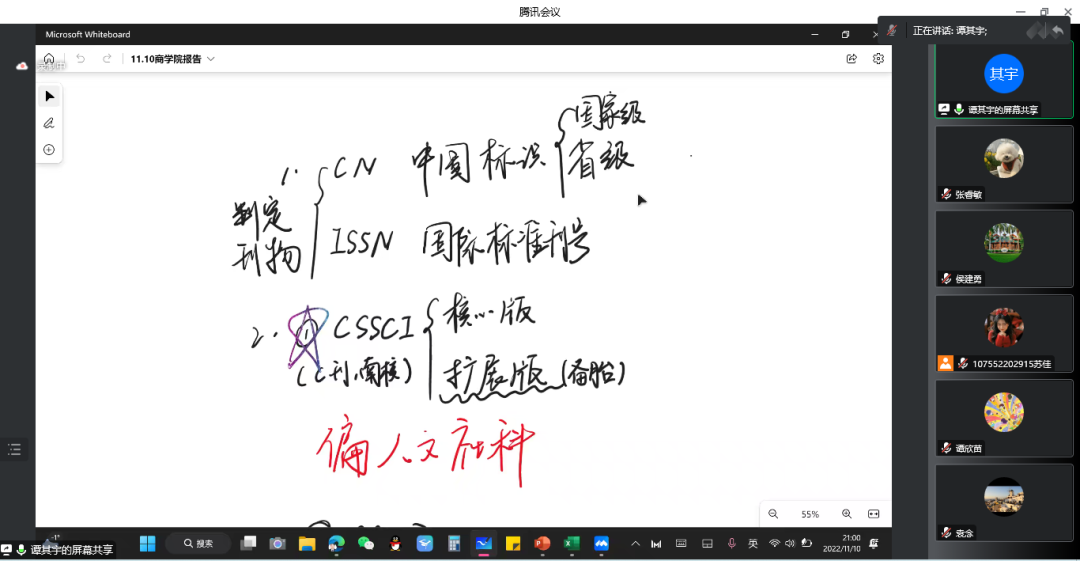 腾讯会议
Microsoft Whiteboard
正在讲话: 谭其宇;
11.10商学院报告
其宇
谭其宇的屏幕共享
张睿敏
侯建勇
107552202915苏佳
谭欣苗
袁淰
1. 判定刊物
CN 中国标识
国家级
省级
ISSN 国际标准刊号
2. ① CSSCI
(C刊、南核)
核心版
扩展版 (备胎)
偏人文社科
55%
-1°
谭其宇的屏幕共享
搜索
英
21:00
2022/11/10